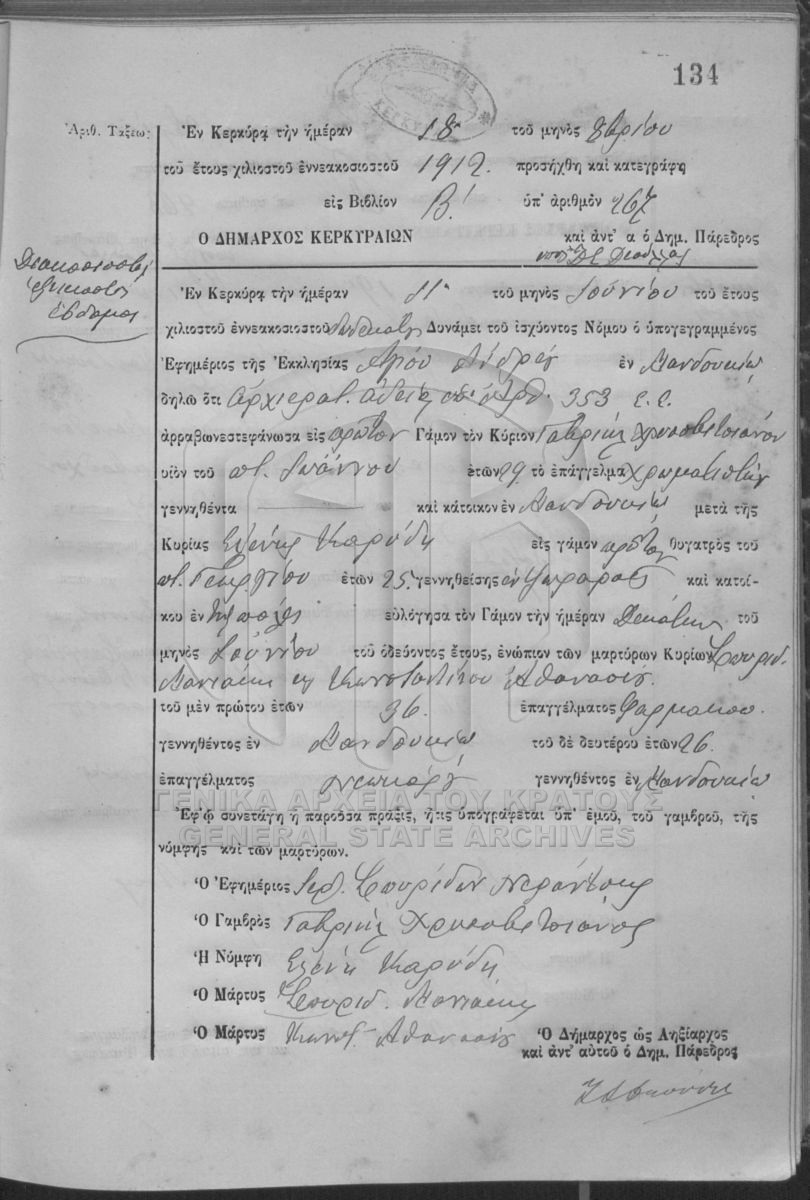 134
Ἀριθ. Τάξεως
Ἐν Κερκύρᾳ τὴν ἡμέραν 18 τοῦ μηνὸς 8βρίου
τοῦ ἔτους χιλιοστοῦ ἐννεακοσιοστοῦ 1912. προσήχθη καὶ κατεγράφη
εἰς Βιβλίον Β! ὑπ' ἀριθμὸν 267
Ο ΔΗΜΑΡΧΟΣ ΚΕΡΚΥΡΑΙΩΝ καὶ ἀντ' α ὁ Δημ. Πάρεδρος
Διακοσιοστὴ
εἰκοστὴ
ἑβδόμη
Ἐν Κερκύρᾳ τὴν ἡμέραν 11 τοῦ μηνὸς Ἰουνίου τοῦ ἔτους
χιλιοστοῦ ἐννεακοσιοστοῦ Δυνάμει τοῦ ἰσχύοντος Νόμου ὁ ὑπογεγραμμένος
Ἐφημέριος τῆς Ἐκκλησίας Ἁγίου Ἀνδρέα ἐν Μανδουκίῳ
δηλῶ ὅτι ἀρχιερατ. ἀδείᾳ ὑπ' ἀρθ. 353 ἐ.ἐ.
ἀρραβωνεστεφάνωσα εἰς πρῶτον Γάμον τὸν Κύριον Γαβριὴλ Χρυσοβιτσιάνον
υἱὸν τοῦ π. Ἰωάννου ἐτῶν 29 τὸ ἐπάγγελμα χρωματιστὴν
γεννηθέντα καὶ κάτοικον ἐν Μανδουκίῳ μετὰ τῆς
Κυρίας Ἑλένης Καρύδη εἰς γάμον πρῶτον θυγατρὸς τοῦ
π. Γεωργίου ἐτῶν 25 γεννηθείσης ἐν καὶ κατοί-
κου ἐν εὐλόγησα τὸν Γάμον τὴν ἡμέραν Δεκάτην τοῦ
μηνὸς Ἰουνίου τοῦ ὁδεύοντος ἔτους, ἐνώπιον τῶν μαρτύρων Κυρίων Σπυρίδ.
Μανιάκη κ Κωνσταντίνου Ἀθανάση.
τοῦ μὲν πρώτου ἐτῶν 36. ἐπαγγέλματος Φαρμακοπ.
γεννηθέντος ἐν Μανδουκίῳ τοῦ δὲ δευτέρου ἐτῶν 26.
ἐπαγγέλματος γεννηθέντος ἐν Μανδουκίῳ
ΓΕΝΙΚΑ ΑΡΧΕΙΑ ΤΟΥ ΚΡΑΤΟΥΣ
Ἐφ' ᾧ συνετάγη ἡ παροῦσα πρᾶξις, ἥτις ὑπογράφεται ὑπ' ἐμοῦ, τοῦ γαμβροῦ, τῆς
GENERAL STATE ARCHIVES
νύμφης καὶ τῶν μαρτύρων.
Ὁ Ἐφημέριος Ἱερ. Σπυρίδων
Ὁ Γαμβρὸς Γαβριὴλ Χρυσοβιτσιάνος
Ἡ Νύμφη Ἑλένη Καρύδη
Ὁ Μάρτυς Σπυρίδ. Μανιάκης
Ὁ Μάρτυς Κωνστ. Ἀθανάσης Ὁ Δήμαρχος ὡς Ληξίαρχος
καὶ ἀντ' αὐτοῦ ὁ Δημ. Πάρεδρος